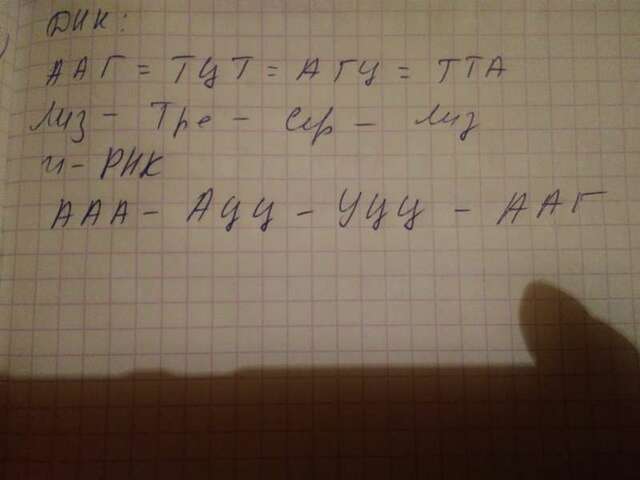 ДНК:
ААГ = ТЦТ = АГЦ = ТТА
Лиз - Тре - Сер - Лиз
и-РНК
ААА - АЦЦ - УЦЦ - ААГ